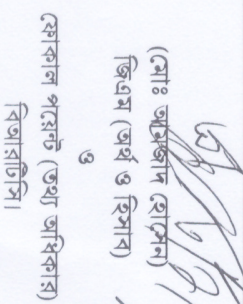 (মোঃ আমজাদ হোসেন)
জিএম (অর্থ ও হিসাব)
ও
ফোকাল পয়েন্ট (তথ্য অধিকার)
বিআরটিসি।